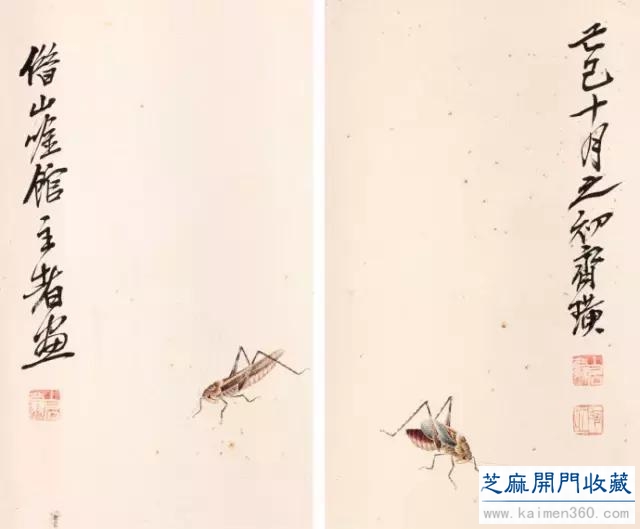 借山唫館主者畫
巳十月之初齊璜
芝麻開門收藏
www.kaimen360.com